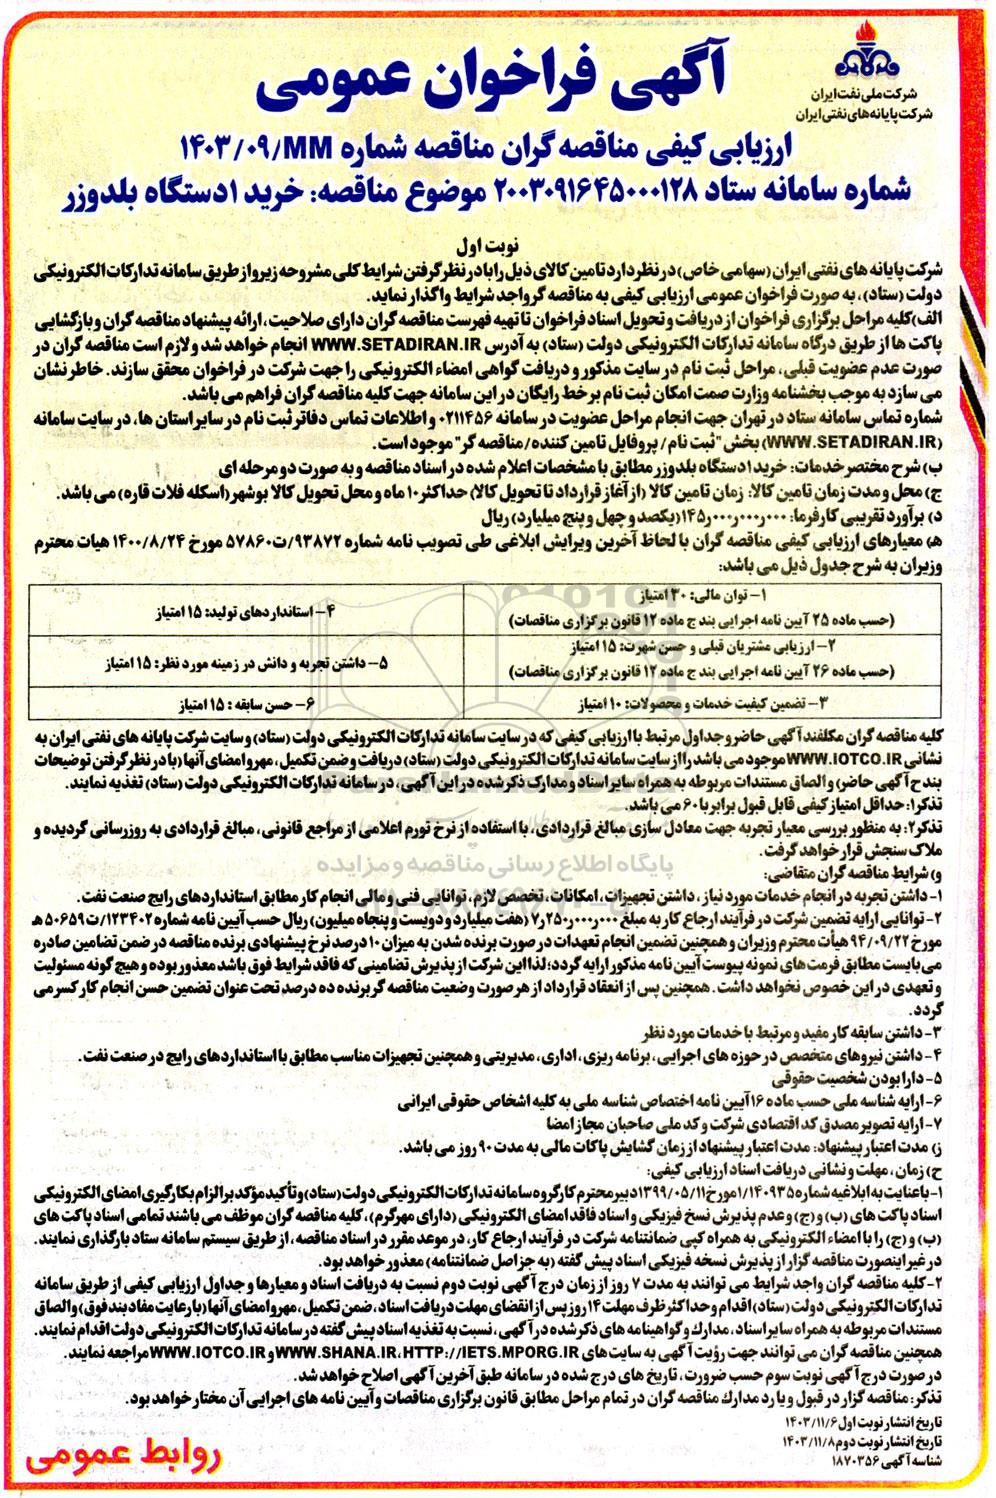 شرکت ملی نفت ایران
شرکت پایانه های نفتی ایران
آگهی فراخوان عمومی
ارزیابی کیفی مناقصه گران مناقصه شماره ۱۴۰۳/۰۹/MM
شماره سامانه ستاد ۲۰۰۳۰۹۱۶۴۵۰۰۰۱۲۸ موضوع مناقصه: خرید ۱دستگاه بلدوزر
نوبت اول
شرکت پایانه های نفتی ایران (سهامی خاص) در نظر دارد تامین کالای ذیل را با در نظر گرفتن شرایط کلی مشروحه زیر و از طریق سامانه تدارکات الکترونیکی
دولت (ستاد)، به صورت فراخوان عمومی ارزیابی کیفی به مناقصه گر واجد شرایط واگذار نماید.
الف)کلیه مراحل برگزاری فراخوان از دریافت و تحویل اسناد فراخوان تا تهیه فهرست مناقصه گران دارای صلاحیت، ارائه پیشنهاد مناقصه گران و بازگشایی
پاکت ها از طریق درگاه سامانه تدارکات الکترونیکی دولت (ستاد) به آدرس WWW.SETADIRAN.IR انجام خواهد شد و لازم است مناقصه گران در
صورت عدم عضویت قبلی، مراحل ثبت نام در سایت مذکور و دریافت گواهی امضاء الکترونیکی را جهت شرکت در فراخوان محقق سازند. خاطر نشان
می سازد به موجب بخشنامه وزارت صمت امکان ثبت نام بر خط رایگان در این سامانه جهت کلیه مناقصه گران فراهم می باشد.
شماره تماس سامانه ستاد در تهران جهت انجام مراحل عضویت در سامانه ۰۲۱۱۴۵۶ و اطلاعات تماس دفاتر ثبت نام در سایر استان ها، در سایت سامانه
(WWW.SETADIRAN.IR) بخش "ثبت نام / پروفایل تامین کننده/مناقصه گر" موجود است.
ب) شرح مختصر خدمات: خرید ۱دستگاه بلدوزر مطابق با مشخصات اعلام شده در اسناد مناقصه و به صورت دو مرحله ای
ج) محل و مدت زمان تامین کالا: زمان تامین کالا (از آغاز قرارداد تا تحویل کالا) حداکثر ۱۰ ماه و محل تحویل کالا بوشهر(اسکله فلات قاره) می باشد.
د) برآورد تقریبی کارفرما: ۱۴۵٫۰۰۰٫۰۰۰٫۰۰۰(یکصد و چهل و پنج میلیارد) ریال
ه) معیارهای ارزیابی کیفی مناقصه گران با لحاظ آخرین ویرایش ابلاغی طی تصویب نامه شماره ۹۳۸۷۲/ت۵۷۸۶۰ مورخ ۱۴۰۰/۸/۲۴ هیات محترم
وزیران به شرح جدول ذیل می باشد:
۱- توان مالی: ۳۰ امتیاز
(حسب ماده ۲۵ آیین نامه اجرایی بند ج ماده ۱۲ قانون برگزاری مناقصات)
۴- استانداردهای تولید: ۱۵ امتیاز
۲- ارزیابی مشتریان قبلی و حسن شهرت: ۱۵ امتیاز
(حسب ماده ۲۶ آیین نامه اجرایی بند ج ماده ۱۲ قانون برگزاری مناقصات)
۵- داشتن تجربه و دانش در زمینه مورد نظر: ۱۵ امتیاز
۳- تضمین کیفیت خدمات و محصولات: ۱۰ امتیاز
۶- حسن سابقه : ۱۵ امتیاز
کلیه مناقصه گران مکلفند آگهی حاضر و جداول مرتبط با ارزیابی کیفی که در سایت سامانه تدارکات الکترونیکی دولت (ستاد) و سایت شرکت پایانه های نفتی ایران به
نشانی WWW.IOTCO.IR موجود می باشد را از سایت سامانه تدارکات الکترونیکی دولت (ستاد) دریافت و ضمن تکمیل، مهر و امضای آنها (با در نظر گرفتن توضیحات
بند ح آگهی حاضر) و الصاق مستندات مربوطه به همراه سایر اسناد و مدارک ذکر شده در این آگهی، در سامانه تدارکات الکترونیکی دولت (ستاد) تغذیه نمایند.
تذکر۱: حداقل امتیاز کیفی قابل قبول برابر با ۶۰ می باشد.
تذکر۲: به منظور بررسی معیار تجربه جهت معادل سازی مبالغ قراردادی، با استفاده از نرخ تورم اعلامی از مراجع قانونی، مبالغ قراردادی به روزرسانی گردیده و
ملاک سنجش قرار خواهد گرفت.
پایگاه اطلاع رسانی مناقصه و مزایده
و) شرایط مناقصه گران متقاضی:
۱- داشتن تجربه در انجام خدمات مورد نیاز، داشتن تجهیزات، امکانات، تخصص لازم، توانایی فنی و مالی انجام کار مطابق استانداردهای رایج صنعت نفت.
۲- توانایی ارایه تضمین شرکت در فرآیند ارجاع کار به مبلغ ۷٫۲۵۰٫۰۰۰٫۰۰۰ (هفت میلیارد و دویست و پنجاه میلیون) ریال حسب آیین نامه شماره ۱۲۳۴۰۲/ت۵۰۶۵۹ ه
مورخ ۹۴/۰۹/۲۲ هیأت محترم وزیران و همچنین تضمین انجام تعهدات در صورت برنده شدن به میزان ۱۰ درصد نرخ پیشنهادی برنده مناقصه در ضمن تضامین صادره
می بایست مطابق فرمت های نمونه پیوست آیین نامه مذکور ارایه گردد؛ لذا این شرکت از پذیرش تضامینی که فاقد شرایط فوق باشد معذور بوده و هیچ گونه مسئولیت
و تعهدی در این خصوص نخواهد داشت. همچنین پس از انعقاد قرارداد از هر صورت وضعیت مناقصه گر برنده ده درصد تحت عنوان تضمین حسن انجام کار کسر می
گردد.
۳- داشتن سابقه کار مفید و مرتبط با خدمات مورد نظر
۴- داشتن نیروهای متخصص در حوزه های اجرایی، برنامه ریزی، اداری، مدیریتی و همچنین تجهیزات مناسب مطابق با استانداردهای رایج در صنعت نفت.
۵- دارا بودن شخصیت حقوقی
۶- ارایه شناسه ملی حسب ماده ۱۶آیین نامه اختصاص شناسه ملی به کلیه اشخاص حقوقی ایرانی
۷- ارایه تصویر مصدق کد اقتصادی شرکت و کد ملی صاحبان مجاز امضا
ز) مدت اعتبار پیشنهاد: مدت اعتبار پیشنهاد از زمان گشایش پاکات مالی به مدت ۹۰ روز می باشد.
ح) زمان، مهلت و نشانی دریافت اسناد ارزیابی کیفی:
۱- با عنایت به ابلاغیه شماره ۱/۱۴۰۹۳۵مورخ ۱۳۹۹/۰۵/۱۱دبیر محترم کارگروه سامانه تدارکات الکترونیکی دولت (ستاد) و تأکید مؤکد بر الزام بکارگیری امضای الکترونیکی
اسناد پاکت های (ب) و (ج) و عدم پذیرش نسخ فیزیکی و اسناد فاقد امضای الکترونیکی (دارای مهر گرم)، کلیه مناقصه گران موظف می باشند تمامی اسناد پاکت های
(ب) و (ج) را با امضاء الکترونیکی به همراه کپی ضمانتنامه شرکت در فرآیند ارجاع کار، در موعد مقرر در اسناد مناقصه، از طریق سیستم سامانه ستاد بارگذاری نمایند.
در غیر اینصورت مناقصه گزار از پذیرش نسخه فیزیکی اسناد پیش گفته (به جز اصل ضمانتنامه) معذور خواهد بود.
۲- کلیه مناقصه گران واجد شرایط می توانند به مدت ۷ روز از زمان درج آگهی نوبت دوم نسبت به دریافت اسناد و معیارها و جداول ارزیابی کیفی از طریق سامانه
تدارکات الکترونیکی دولت (ستاد) اقدام و حداکثر ظرف مهلت ۱۴ روز پس از انقضای مهلت دریافت اسناد، ضمن تکمیل، مهر و امضای آنها (با رعایت مفاد بند فوق) و الصاق
مستندات مربوطه به همراه سایر اسناد، مدارک و گواهینامه های ذکر شده در آگهی، نسبت به تغذیه اسناد پیش گفته در سامانه تدارکات الکترونیکی دولت اقدام نمایند.
همچنین مناقصه گران می توانند جهت رؤیت آگهی به سایت های WWW.SHANA.IR، HTTP://IETS.MPORG.IR و WWW.IOTCO.IR مراجعه نمایند.
در صورت درج آگهی نوبت سوم حسب ضرورت، تاریخ های درج شده در سامانه طبق آخرین آگهی اصلاح خواهد شد.
تذکر: مناقصه گزار در قبول و یا رد مدارک مناقصه گران در تمام مراحل مطابق قانون برگزاری مناقصات و آیین نامه های اجرایی آن مختار خواهد بود.
تاریخ انتشار نوبت اول ۱۴۰۳/۱۱/۶
تاریخ انتشار نوبت دوم ۱۴۰۳/۱۱/۸
شناسه آگهی ۱۸۷۰۳۵۶
روابط عمومی